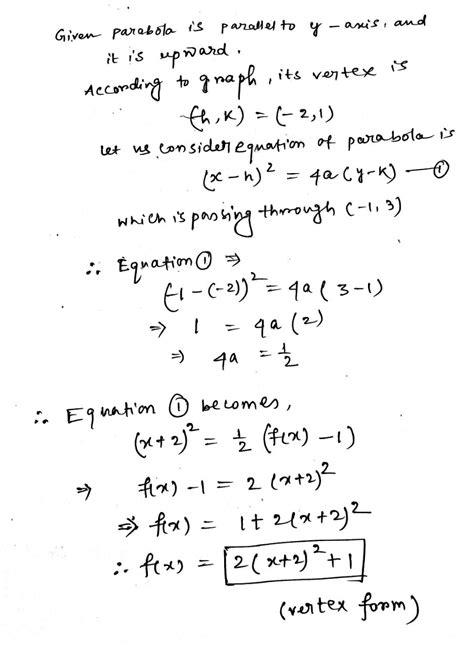 Given parabola is parallel to y-axis, and
it is upward.
According to graph, its vertex is
(h, k) = (-2, 1)
let us consider equation of parabola is
(x-h)² = 4a(y-k) — ①
which is passing through (-1, 3)
∴ Equation ① ⇒
(-1-(-2))² = 4a(3-1)
⇒ 1 = 4a(2)
⇒ 4a = 1/2
∴ Equation ① becomes,
(x+2)² = 1/2 (f(x)-1)
⇒ f(x)-1 = 2(x+2)²
⇒ f(x) = 1+2(x+2)²
∴ f(x) = 2(x+2)²+1
(vertex form)